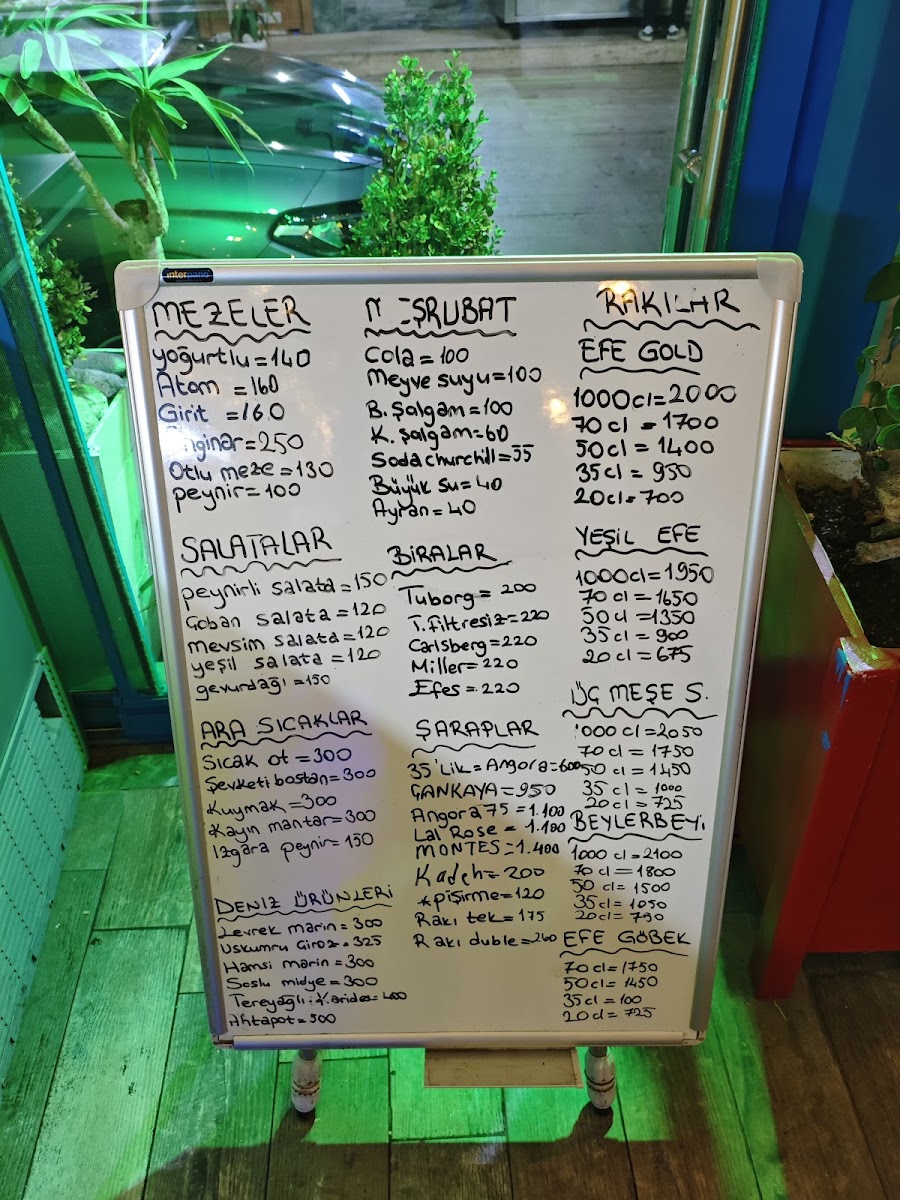 interpano
MEZELER
yoğurtlu=140
Atom =160
Girit =160
nginar=250
Otlu meze=130
peynir=100
SALATALAR
peynirli salata=150
Çoban salata=120
mevsim salata=120
yeşil salata =120
gevurdağı=150
ARA SICAKLAR
Sıcak ot =300
Şevketi bostan=300
Kuymak=300
Kayın mantar=300
Izgara peynir=150
DENİZ ÜRÜNLERİ
Levrek marin=300
Uskumru Ciroz=325
Hamsi marin=300
Soslu midye=300
Tereyağlı.Karides=400
Ahtapot=500
MEŞRUBAT
Cola=100
Meyve suyu=100
B. Şalgam=100
K. şalgam=60
Soda churchill=55
Büyük su=40
Ayran=40
BİRALAR
Tuborg= 200
T. Filtresiz=220
Carlsberg=220
Miller=220
Efes=220
ŞARAPLAR
35'Lik=Angora=600
ÇANKAYA=950
Angora 75=1.100
Lal Rose=1.100
MONTES=1.400
Kadeh=200
*pişirme=120
Rakı tek=175
Rakı duble=260
RAKILAR
EFE GOLD
1000cl=2000
70 cl=1700
50cl=1400
35cl=950
20cl=700
YEŞİL EFE
1000cl=1950
70 cl=1650
50cl=1350
35cl=900
20cl=675
ÜÇ MEŞE S.
000 cl=2050
70cl=1750
50 cl=1450
35 cl=1000
20 cl=725
BEYLERBEYİ
1000 cl=2100
70 cl=1800
50 cl=1500
35cl=1050
20cl=790
EFE GÖBEK
70cl=1750
50cl=1450
35cl=100
20cl=725